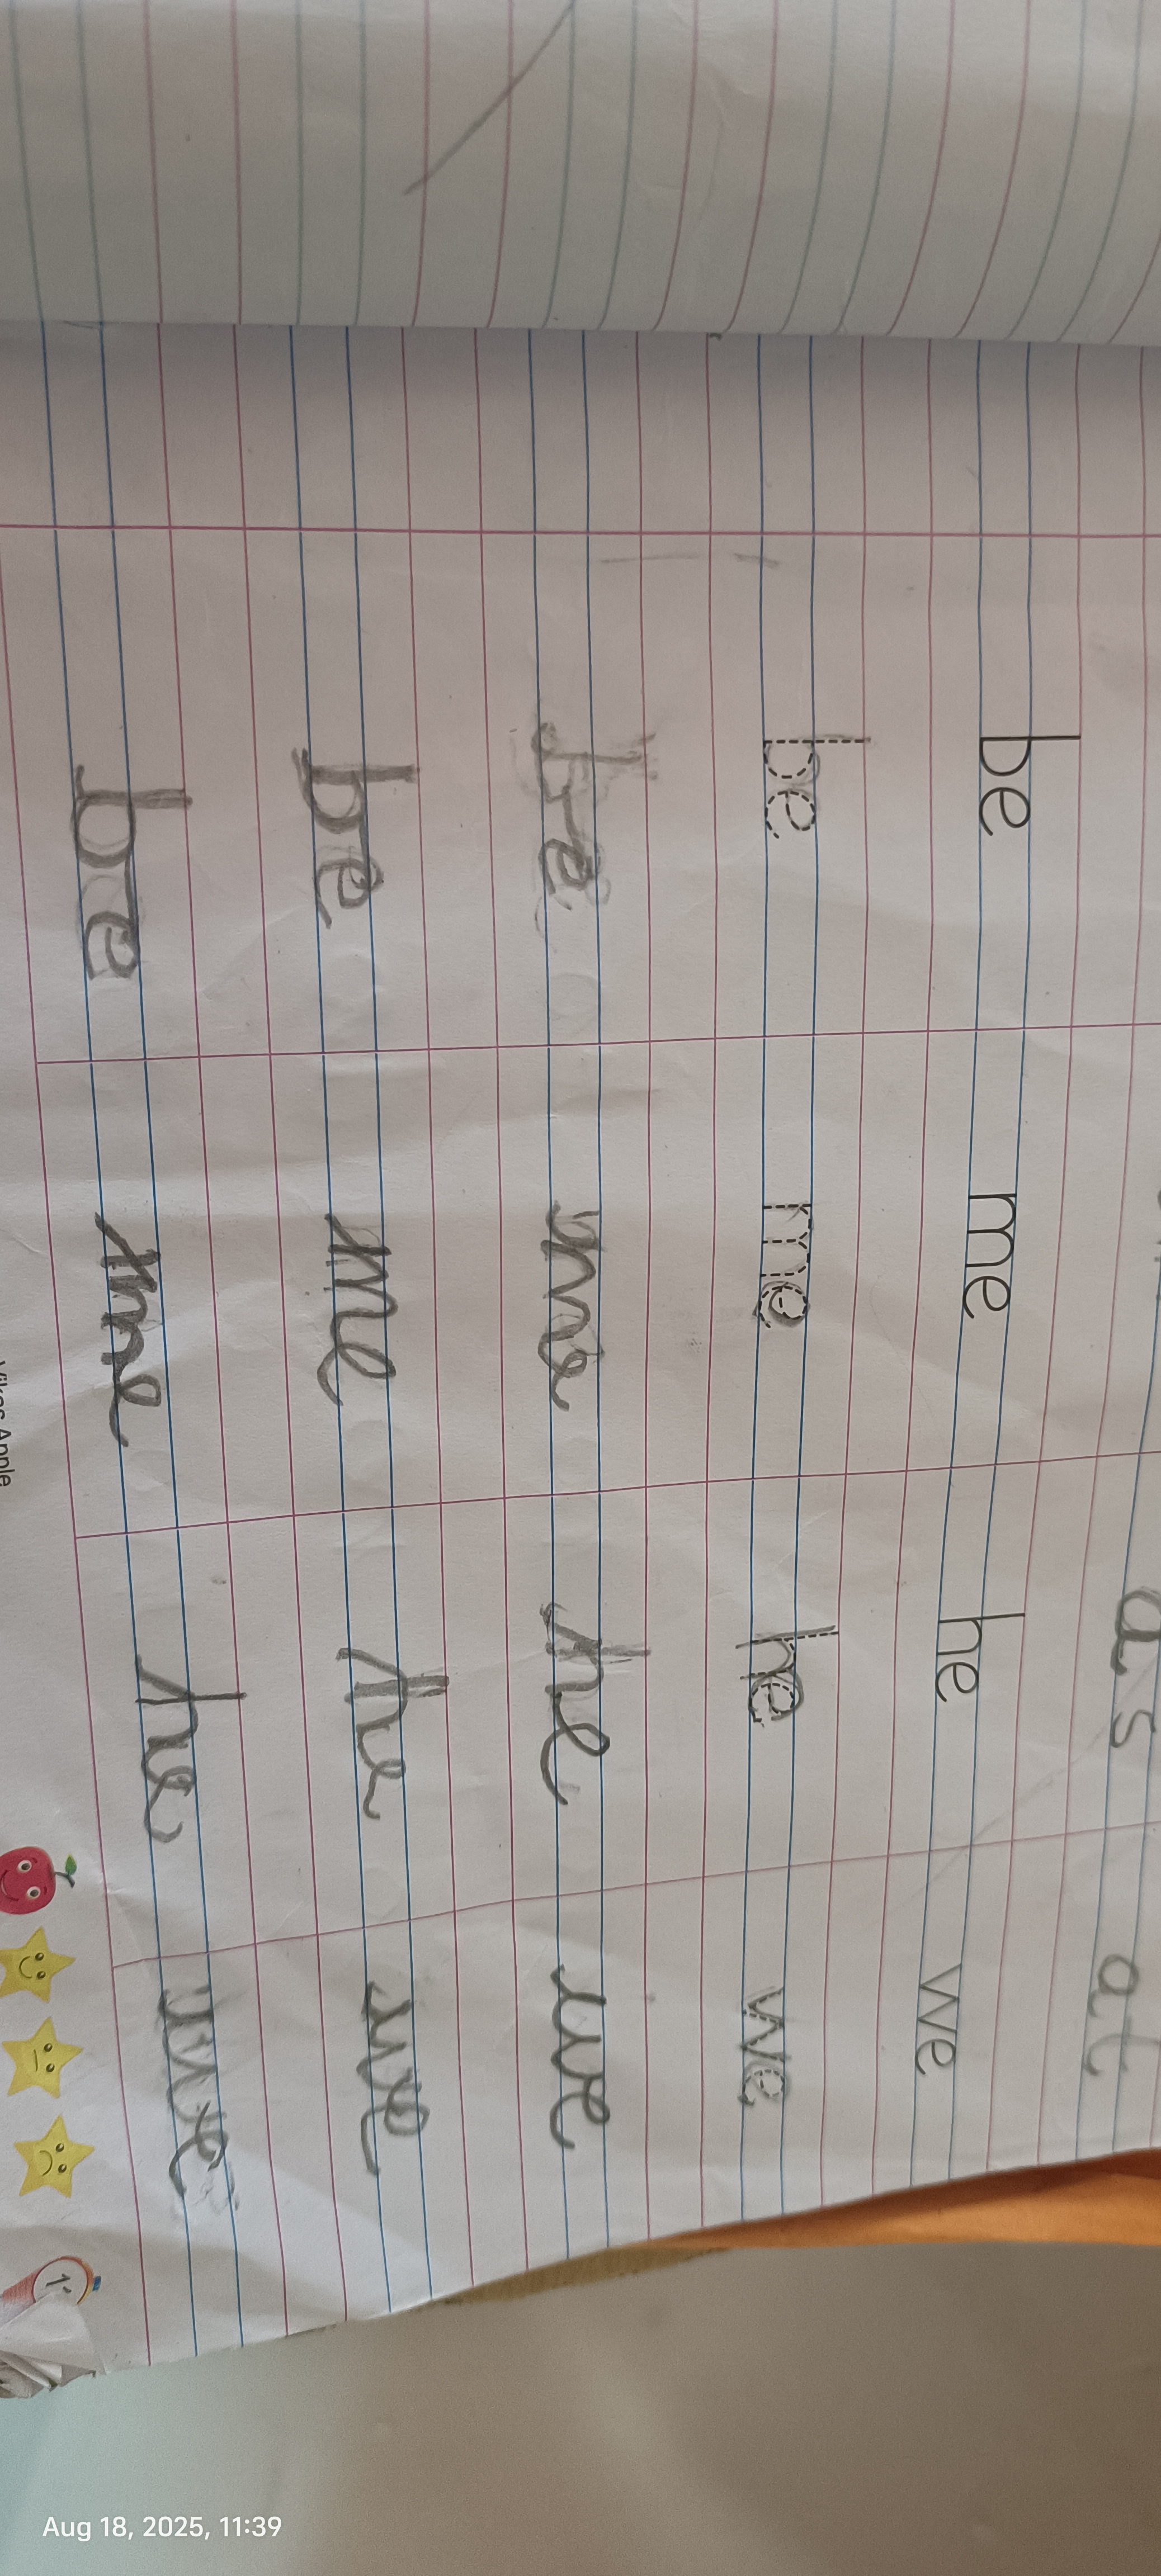 as at
be me he we
be me he we
be me he we
be me he we
be me he we
Vikas Apple
Aug 18, 2025, 11:39